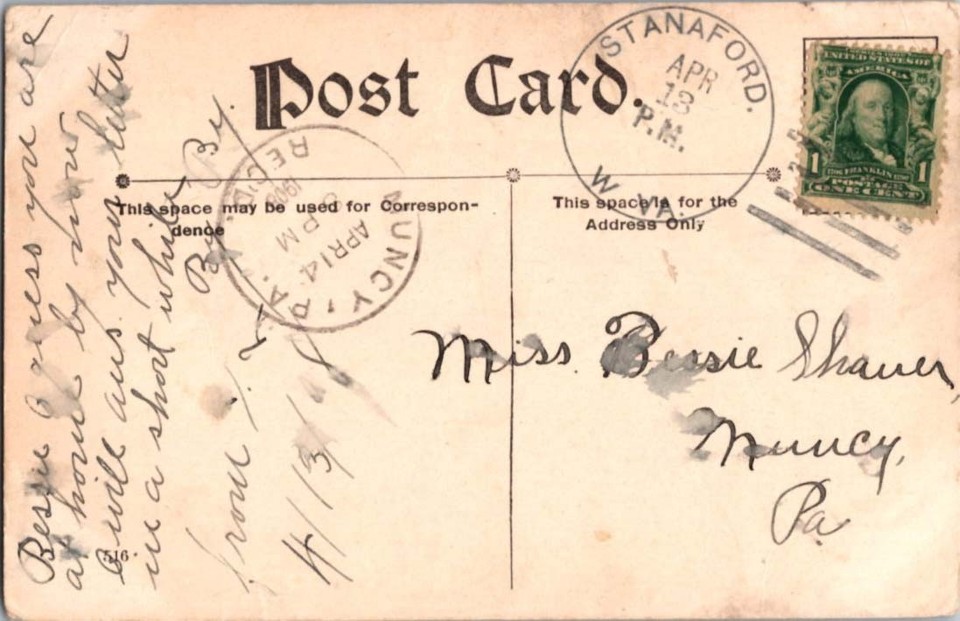 Post Card.
STANAFORD.
APR
13
P.M.
W. VA.
UNITED STATES OF
AMERICA
1 1
FRANKLIN
POSTAGE
ONE CENT
This space may be used for Correspon-
dence
This space is for the
Address Only
MUNCY, PA.
APR 14
PM
1908
REC'D.
Miss Bessie Shaner,
Muncy,
Pa
Bessie I guess you are
at home by now
I will ans your letter
in a short while
By By.
from
4/13/
516